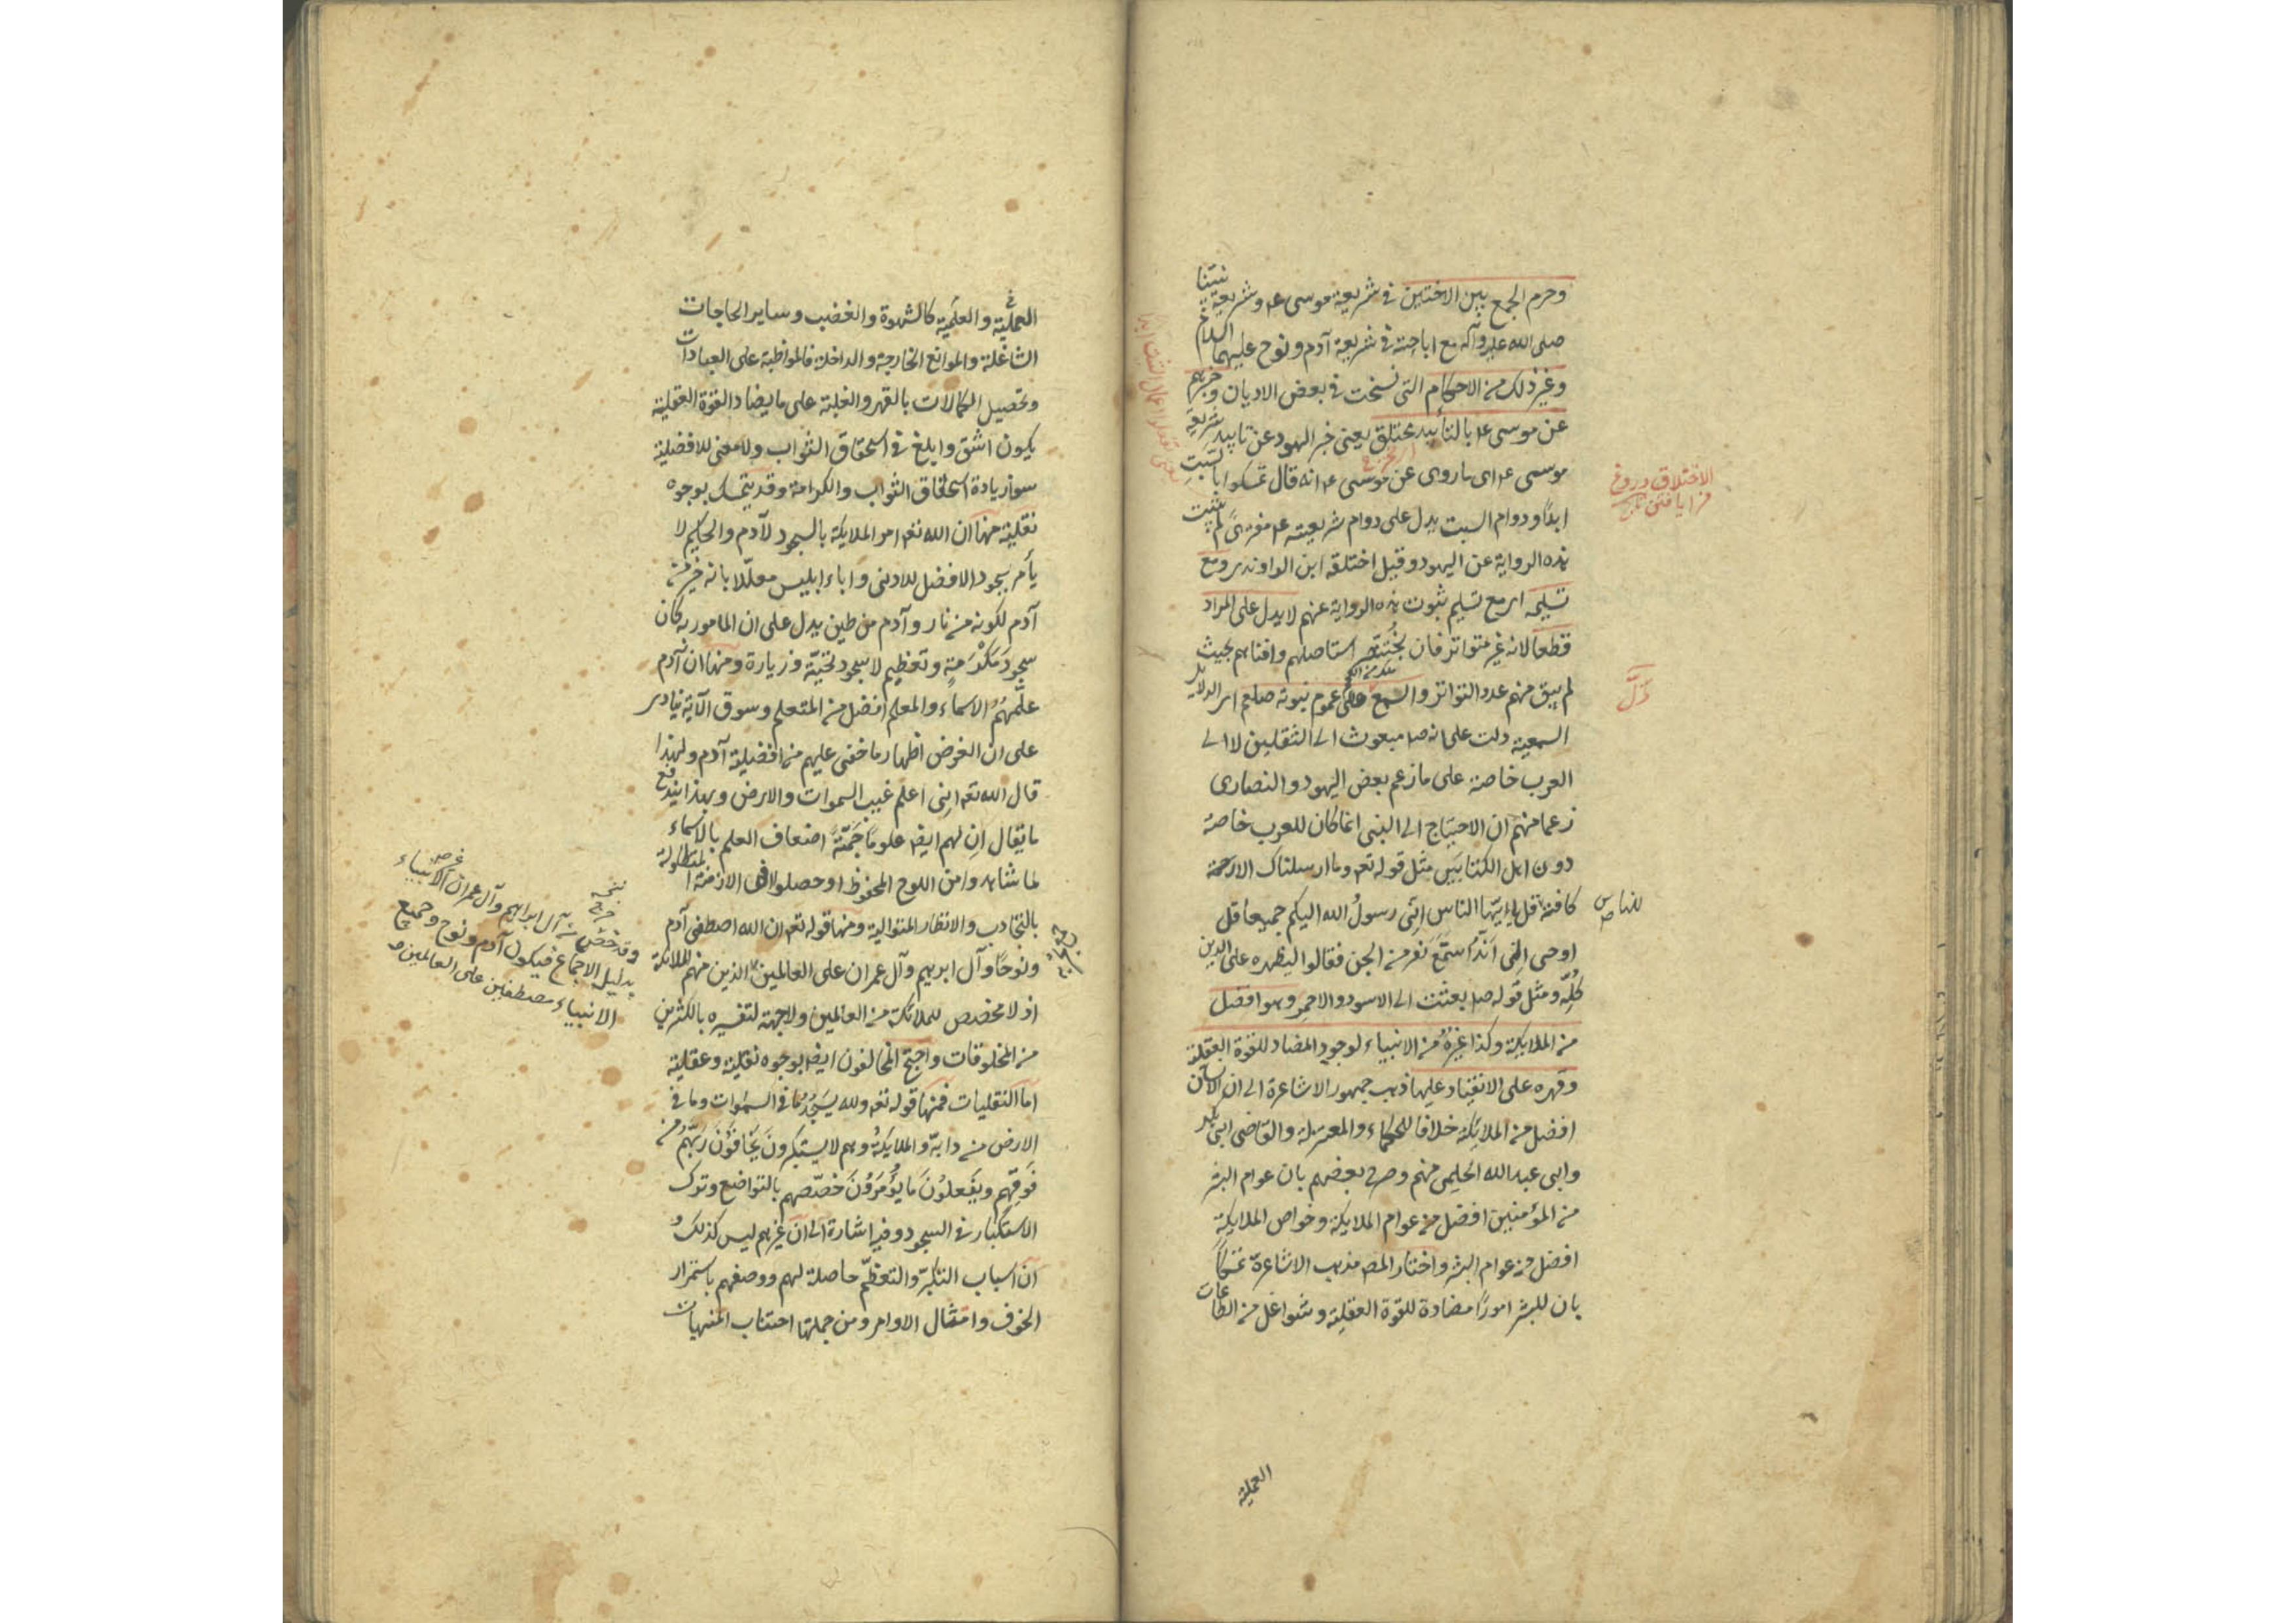 وحرم الجمع بين الاختين فى شريعة موسى ع م وشريعة نبينا
صلى الله عليه وآله مع اباحته فى شريعة آدم ونوح عليهما السلام
وغير ذلك من الاحكام التى نسخت فى بعض الاديان وخبرهم
عن موسى ع م بالتأبيد مختلق يعنى خبر اليهود عن تابيد شريعة
موسى ع م اى ما روى عن موسى ع م انه قال تمسكوا بالسبت
ابدًا ودوام السبت يدل على دوام شريعته ع م مفترىً لم يثبت
هذه الرواية عن اليهود وقيل اختلقه ابن الراوندى ومع
تسليمه اى مع تسليم ثبوت هذه الرواية عنهم لا يدل على المراد
قطعا لانه غير متواتر فان بُختنصر استاصلهم وافناهم بحيث
لم يبق منهم عدد التواتر والسمع على عموم نبوته صلعم اى الدلايل
السمعية دلت على انه ص مبعوث الى الثقلين لا الى
العرب خاصة على ما زعم بعض اليهود والنصارى
زعما منهم ان الاحتياج الى النبى انما كان للعرب خاصة
دون اهل الكتابَيْن مثل قوله تعه وما ارسلناك الا رحمة
كافة قل يا ايّها الناس انِّى رسولُ الله اليكم جميعا قل
اوحى الىّ اَنّهُ استَمَعَ نفر من الجن فقالوا ليظهره على الدين
كُلِّه ومثل قوله ص بعثت الى الاسود والاحمر وهو افضل
من الملايكة وكذا غيرُهُ من الانبياء لوجود المضاد للقوة العقلية
وقهره على الانقياد عليها ذهب جمهور الاشاعرة الى ان الانسان
افضل من الملايكة خلافا للحكماء والمعتزلة والقاضى ابى بكر
وابى عبد الله الحليمى منهم وصرح بعضهم بان عوام البشر
من المؤمنين افضل من عوام الملايكة وخواص الملايكة
افضل من عوام البشر واختار المص مذهب الاشاعرة تمسكاً
بان للبشر امورًا مضادة للقوة العقلية وشواغل من الطاعات
الاختلاق دروغ
فرا بافتن
دَلَّ
للناس ص
العملية
العملية والعلمية كالشهوة والغضب وساير الحاجات
الشاغلة والموانع الخارجة والداخلة فالمواظبة على العبادات
وتحصيل الكمالات بالقهر والغلبة على ما يضاد القوة العقلية
يكون اشق وابلغ فى استحقاق الثواب ولا معنى للافضلية
سوا زيادة استحقاق الثواب والكرامة وقد يتمسك بوجوه
نقلية منها ان الله تعه امر الملايكة بالسجود لآدم والحكيم لا
يأمر بسجود الافضل للادنى واباء ابليس معلّلا بانه خير من
آدم لكونه من نار وآدم من طين يدل على ان المامور به كان
سجودَ مَكْرَمَةٍ وتعظيم لا سجود تحيّة وزيارة ومنها ان آدم
علّمهُمُ الاسماء والمعلم افضل من المتعلم وسوق الآية ينادى
على ان الغرض اظهار ما خفى عليهم من افضلية آدم ولهذا
قال الله تعه انى اعلم غيب السموات والارض وبهذا يندفع
ما يقال ان لهم ايضا علومًا جَمّةً اضعاف العلم بالاسماء
لما شاهدوا من اللوح المحفوظ او حصلوا فى الازمنة المتطاولة
بالتجارب والانظار المتوالية ومنها قوله تعه ان الله اصطفى آدم
ونوحًا وآل ابرهيم وآل عمران على العالمين الذين منهم الملائكة
اذ لا مخصص للملائكة من العالمين ولا جهة لتفسيره بالكثير
من المخلوقات واحتج المخالفون ايضا بوجوه نقلية وعقلية
اما النقليات فمنها قوله تعه ولله يَسجُدُ ما فى السموات وما فى
الارض من دابة والملايكةُ وهم لا يستكبرونَ يَخافُوْنَ رَبَّهُمْ من
فَوقِهِم ويَفْعلُوْنَ ما يُؤْمَرُوْنَ خصّصهم بالتواضع وترك
الاستكبار فى السجود وفيه اشارة الى ان غيرهم ليس كذلك و
ان اسباب التكبّر والتعظّم حاصلة لهم ووصفهم باستمرار
الخوف وامتثال الاوامر ومن جملتها اجتناب المنهيات
وقد خصّ من آل ابراهيم وآل عمران غير الانبياء
بدليل الاجماع فيكون آدم ونوح وجميع
الانبياء مصطفين على العالمين